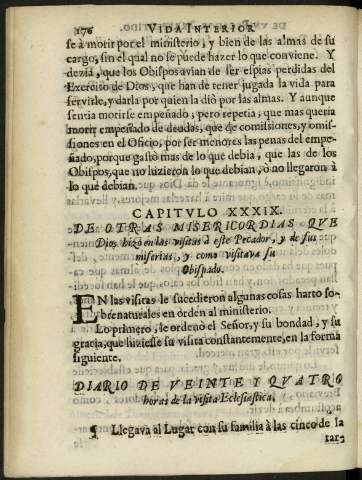 176 VIDA INTERIOR
se à morir por el ministerio, y bien de las almas de su
cargo, sin el qual no se puede hazer lo que conviene. Y
dezia, que los Obispos avian de ser espias perdidas del
Exercito de Dios, que han de tener jugada la vida para
servirle, y darla por quien la diò por las almas. Y aunque
sentia morirse empeñado, pero repetia, que mas queria
morir empeñado de deudas, que de comisiones, y omis-
siones en el Oficio, por ser menores las penas del empe-
ñado, porque gastò mas de lo que debia, que las de los
Obispos, que no hizieron lo que debian, ò no llegaron à
lo que debian.
CAPITVLO XXXIX.
DE OTRAS MISERICORDIAS QUE
Dios hizo en las visitas à este Pecador, y de sus
miserias, y como visitava su
Obispado.
EN las visitas le sucedieron algunas cosas harto so-
brenaturales en orden al ministerio.
Lo primero, le ordenò el Señor, y su bondad, y su
gracia, que hiziesse su visita constantemente, en la forma
siguiente.
DIARIO DE VEINTE Y QVATRO
horas de la visita Eclesiastica.
¶ Llegava al Lugar con su familia à las cinco de la
tar-